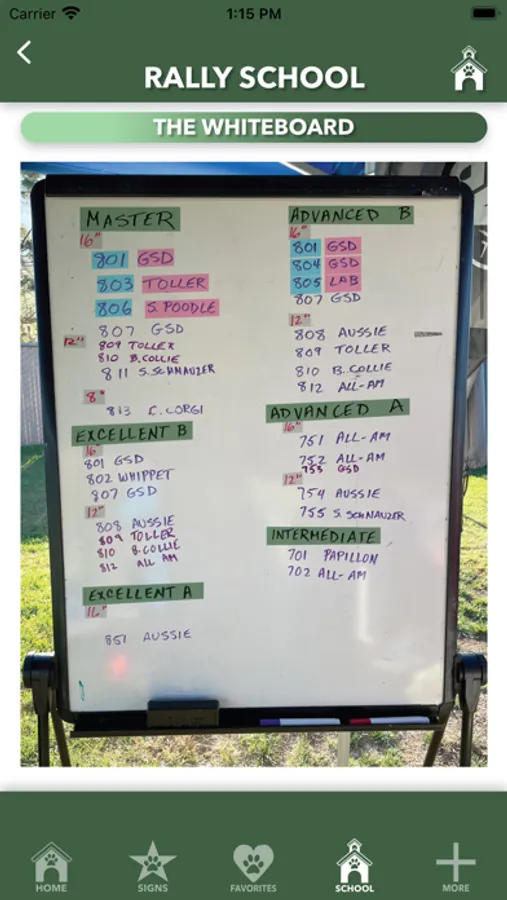 Carrier
1:15 PM
RALLY SCHOOL
THE WHITEBOARD
MASTER
16"
801 GSD
803 TOLLER
806 S. POODLE
807 GSD
12"
809 TOLLER
810 B.COLLIE
811 S.SCHNAUZER
8"
813 C.CORGI
EXCELLENT B
16"
801 GSD
802 WHIPPET
807 GSD
12"
808 AUSSIE
809 TOLLER
810 B.COLLIE
812 ALL AM
EXCELLENT A
16"
851 AUSSIE
ADVANCED B
16"
801 GSD
804 GSD
805 LAB
807 GSD
12"
808 AUSSIE
809 TOLLER
810 B.COLLIE
812 ALL-AM
ADVANCED A
16"
751 ALL-AM
752 ALL-AM
753 GSD
12"
754 AUSSIE
755 S. SCHNAUZER
INTERMEDIATE
701 PAPILLON
702 ALL-AM
HOME
SIGNS
FAVORITES
SCHOOL
MORE